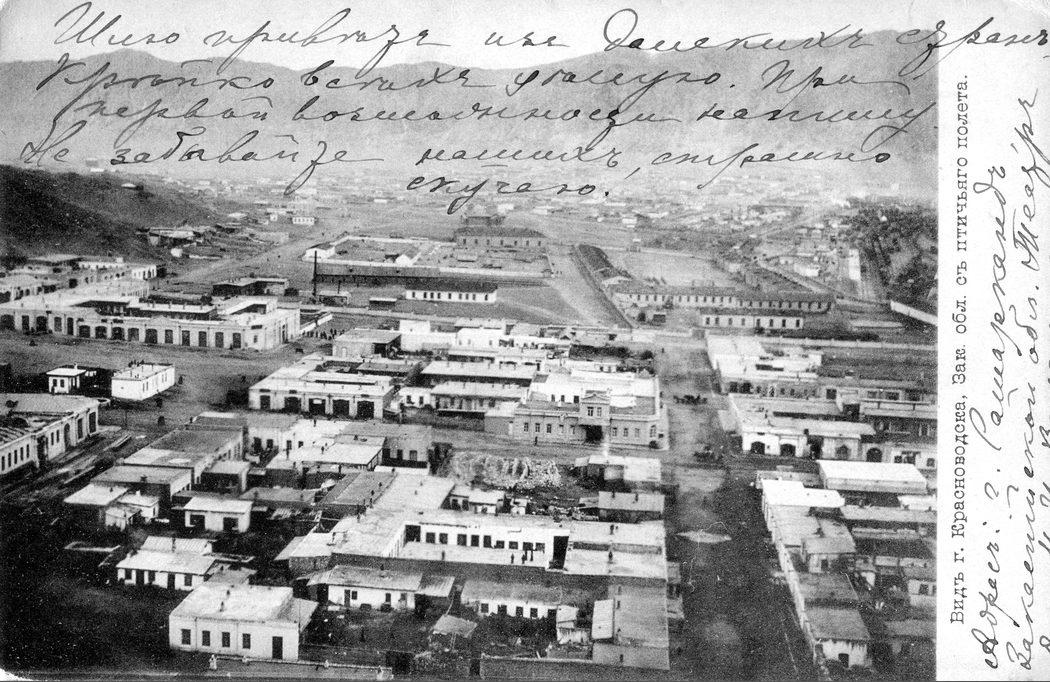 Шлю привѣтъ изъ далекихъ странъ
Крѣпко всѣхъ цѣлую. При
первой возможности напишу
Не забывайте нашихъ, страшно
скучаю!
Видъ г. Красноводска, Зак. обл. съ птичьяго полета.
Адресъ: г. Самаркандъ
Закаспійской обл. Театръ